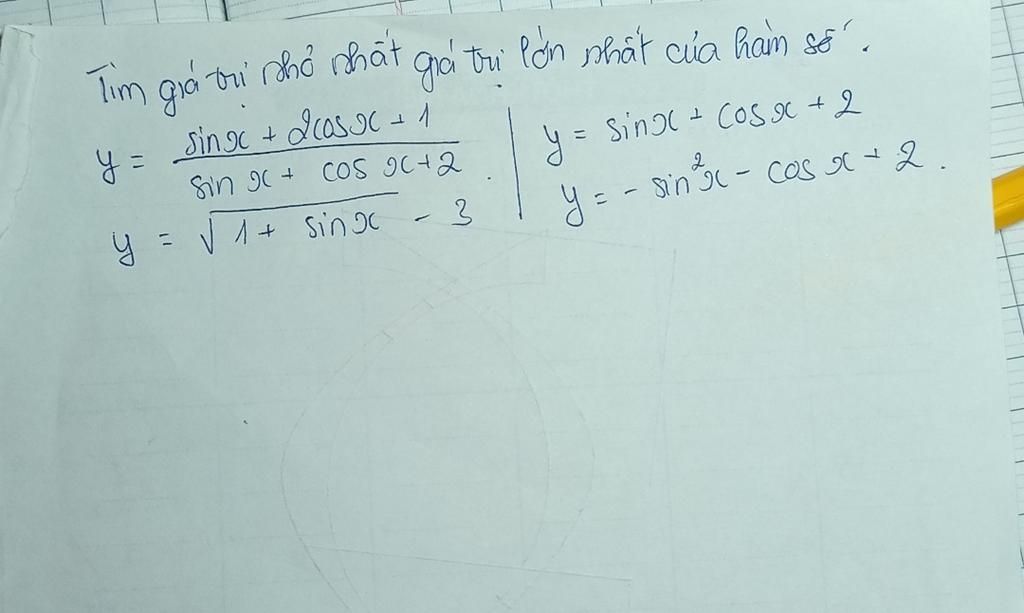 Tìm giá trị nhỏ nhất giá trị lớn nhất của hàm số.
y = \frac{sin x + 2cos x + 1}{sin x + cos x + 2}.
y = \sqrt{1 + sin x} - 3
y = sin x + cos x + 2
y = - sin²x - cos x + 2.